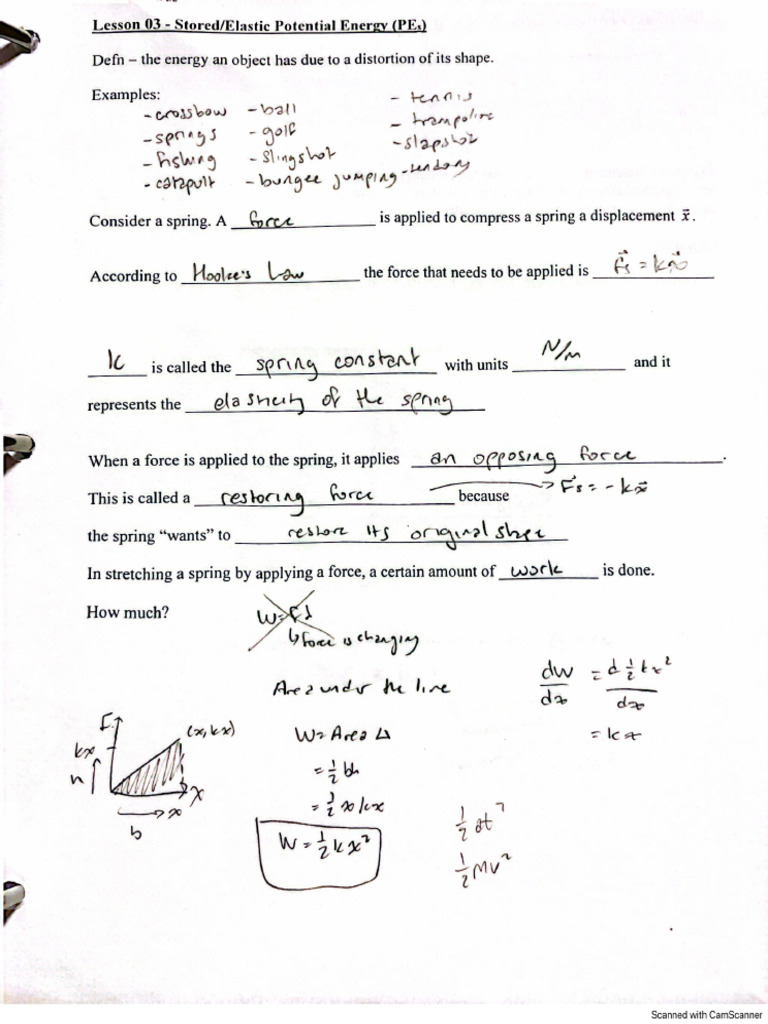 Lesson 03 - Stored/Elastic Potential Energy (PEs)
Defn – the energy an object has due to a distortion of its shape.
Examples:
- crossbow - ball - tennis
- springs - golf - trampoline
- fishing - slingshot - slapshot
- catapult - bungee jumping - tendons
Consider a spring. A force is applied to compress a spring a displacement x⃗.
According to Hooke's Law the force that needs to be applied is F⃗s = kx⃗
k is called the spring constant with units N/m and it
represents the elasticity of the spring
When a force is applied to the spring, it applies an opposing force.
This is called a restoring force because → F⃗s = -kx⃗
the spring “wants” to restore its original shape
In stretching a spring by applying a force, a certain amount of work is done.
How much? W=Fd
↳ force is changing
Area under the line
dW/dx = d ½kx²/dx
= kx
F (x, kx)
kx
h
x
x
b
W= Area Δ
= ½ bh
= ½ x kx
W = ½kx²
½ at²
½ mv²
Scanned with CamScanner